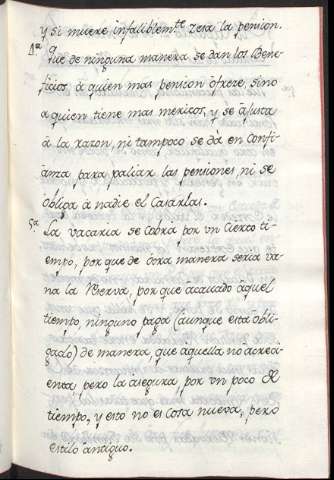 y si muere infaliblem.te zesa la pension.
4a Que de ninguna manera se dan los Bene-
ficios, à quien mas pencion ôfreze, sino
a quien tiene mas meritos, y se ajusta
à la razon, ni tampoco se dà en confi-
anza para paliar las penciones ni se
obliga à nadie el Casarlas.
5a La vacaria se Cobra por vn Cierto ti-
empo, por que de otra manera seria va-
na la Reserva, por que acauado àquel
tiempo, ninguno paga (aunque esta obli-
gado) de manera, que àquella no àcreci-
enta pero la asegura, por vn poco de
tiempo, y esto no es Cosa nueva, pero
estilo àntiguo.